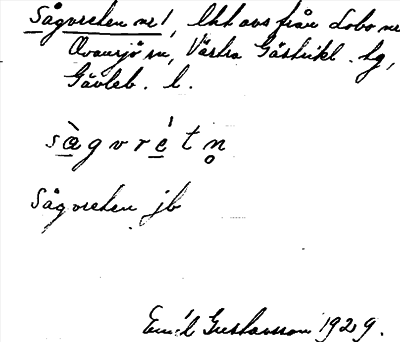 Sågvreten nr 1, lht avs från Lobo nr
Ovansjö sn, Västra Gästrikl. hg,
Gävleb. l.
sàgvrétn̥
Sågvreten jb
Emil Gustavsson 1929.